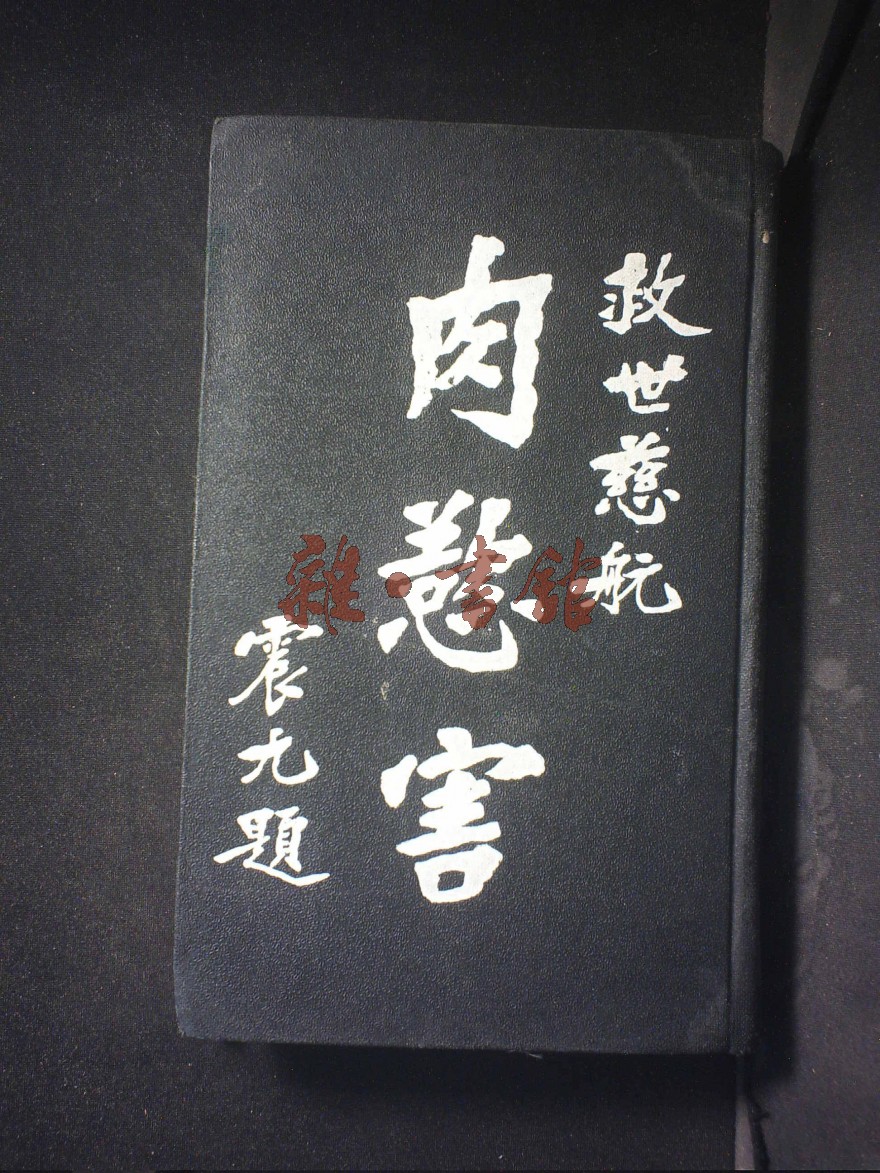 救世慈航
肉慾害
震九題
雜·書館